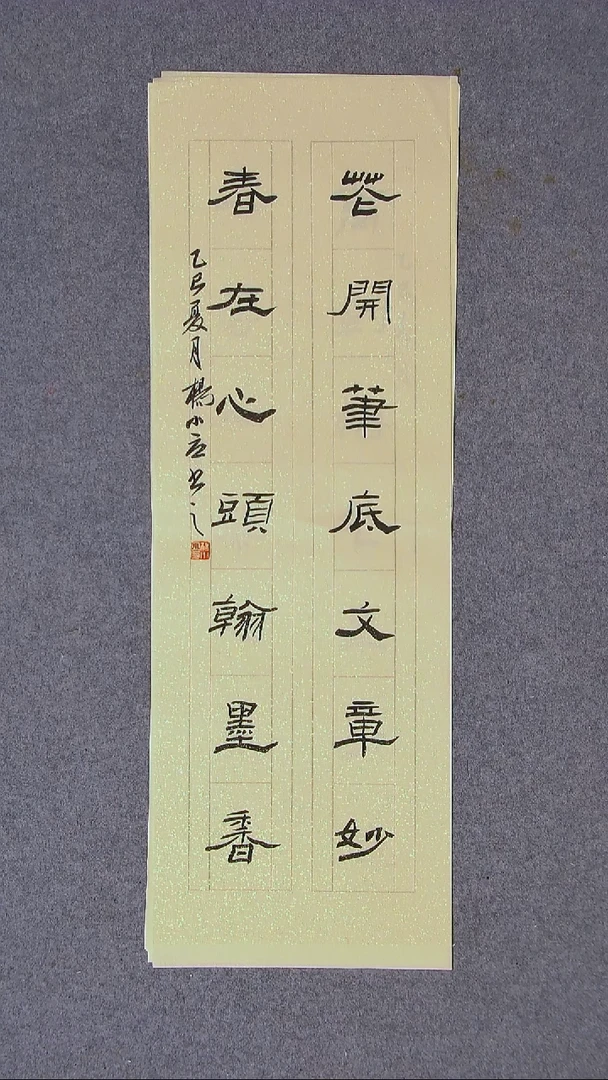 花開筆底文章妙
春在心頭翰墨香
乙巳夏月楊小应书之